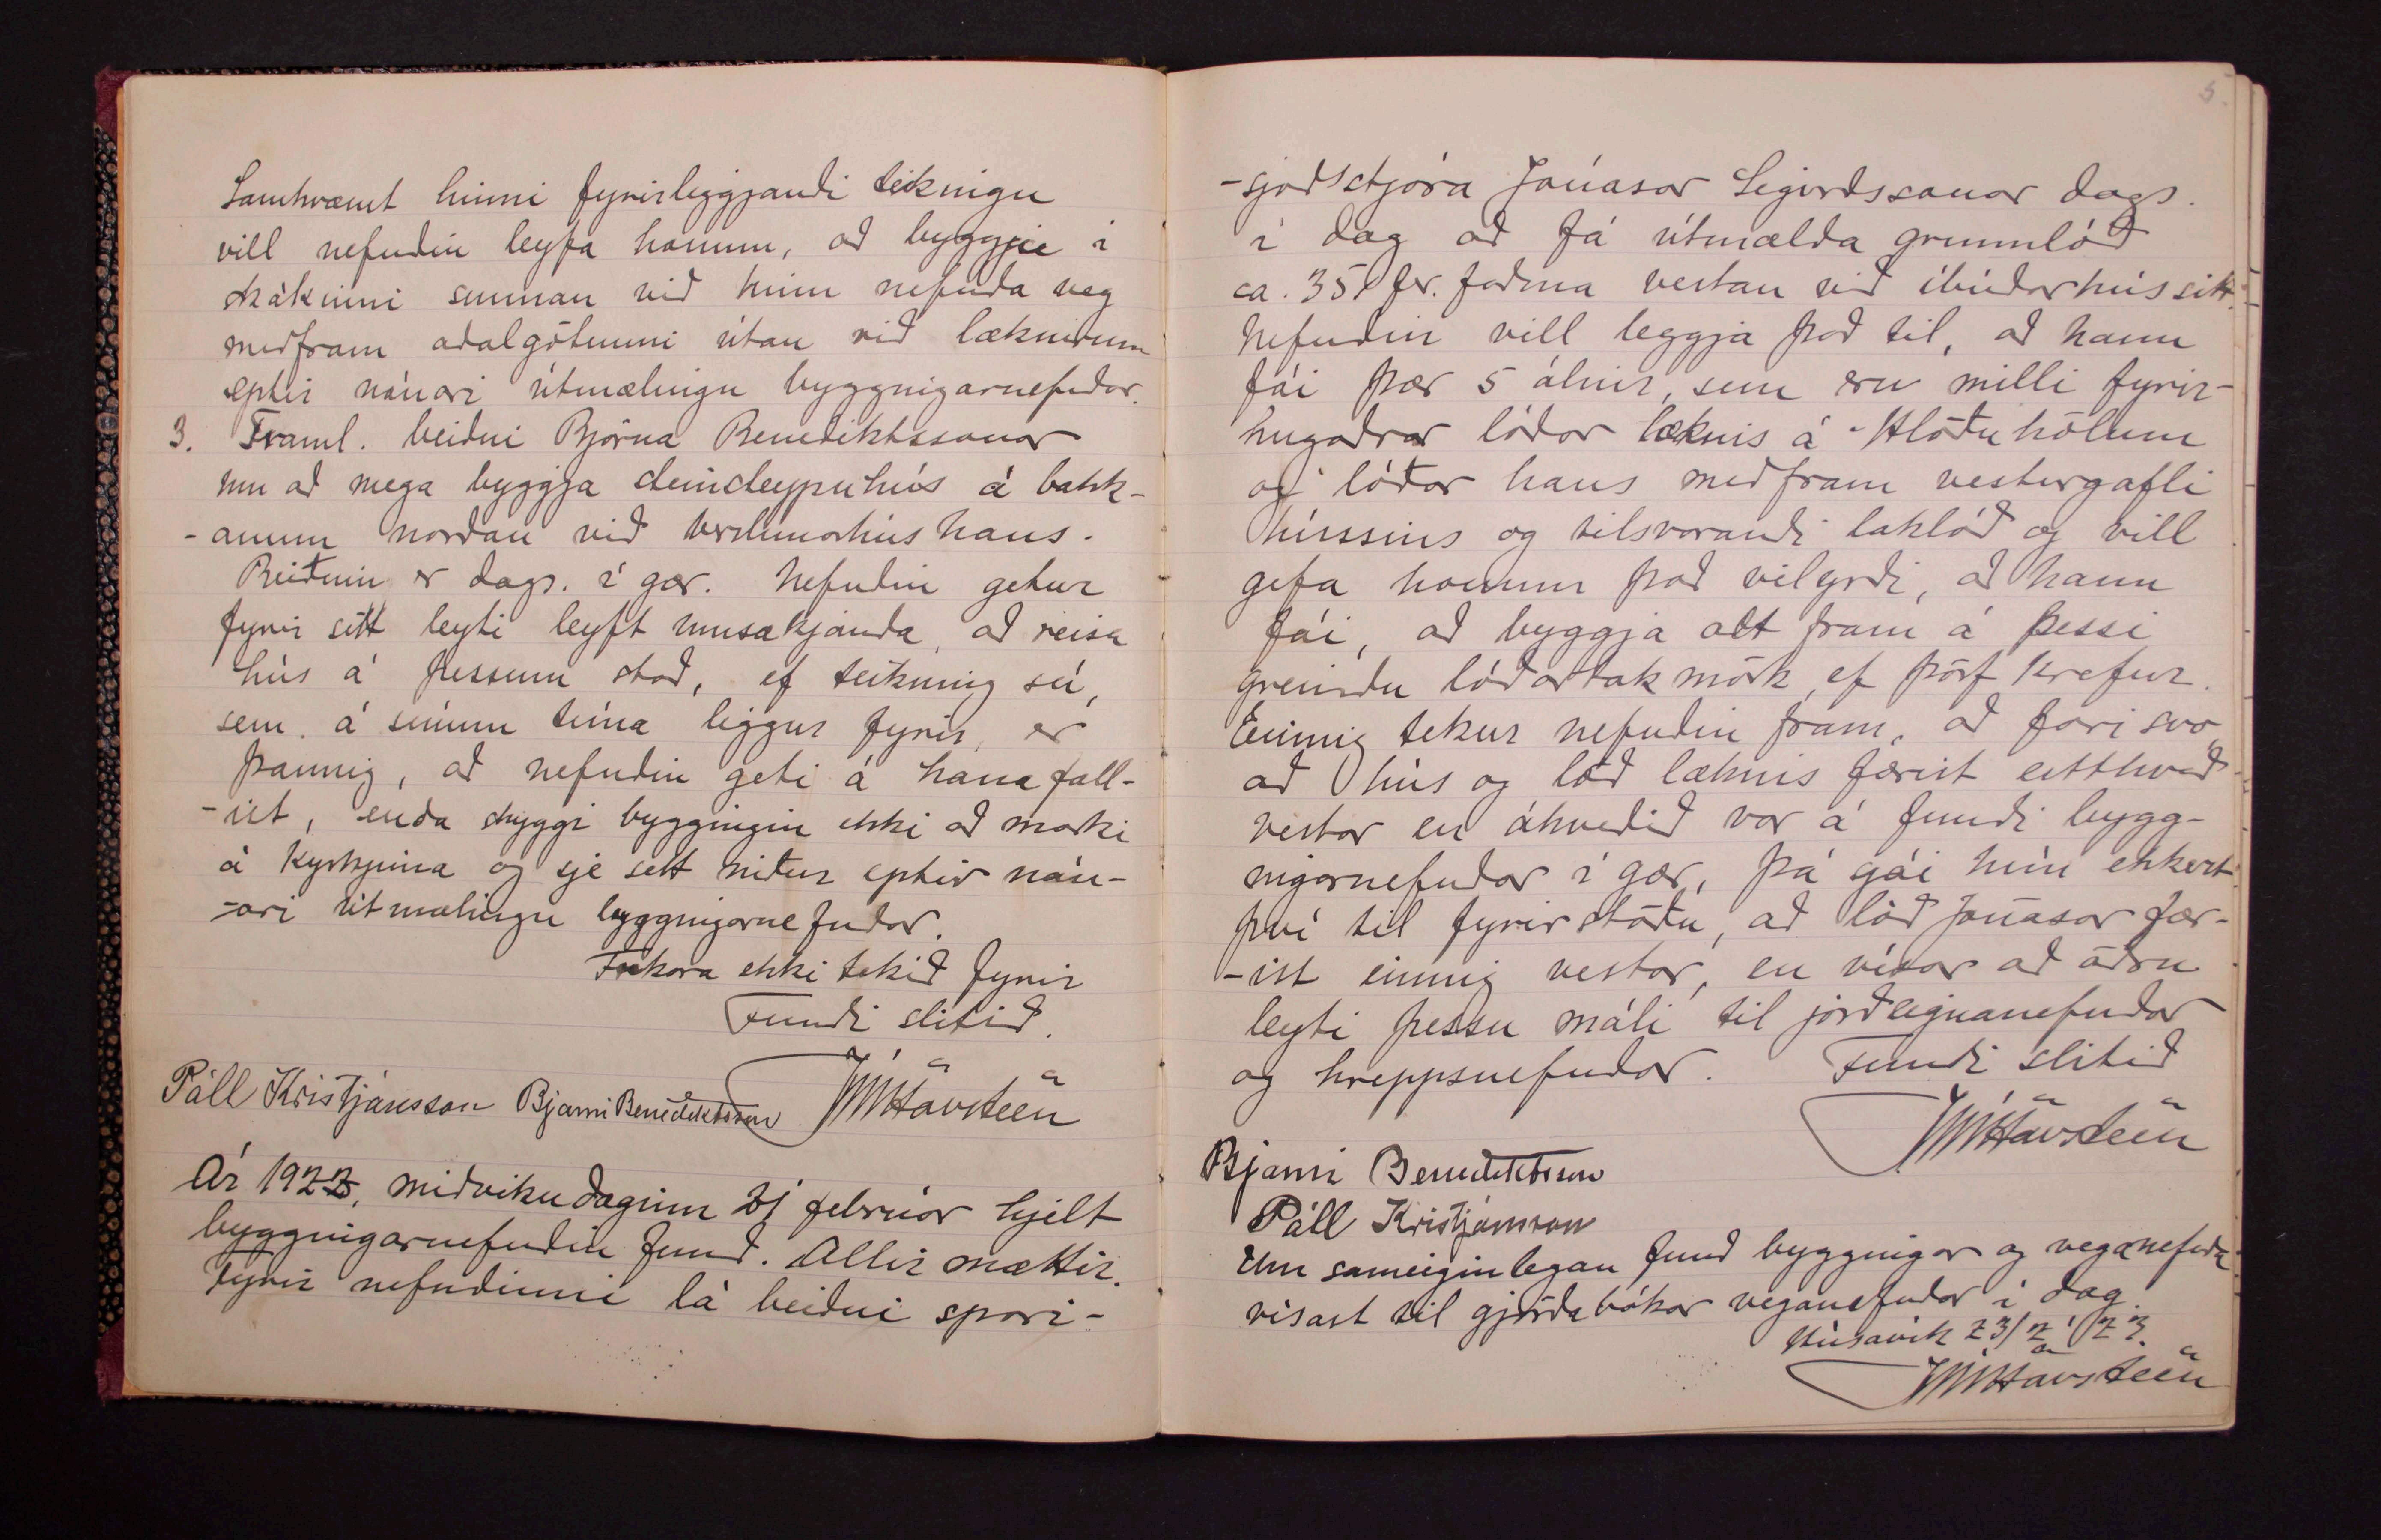 Samkvæmt hinni fyrirleggjandi teikningu
vill nefndin leyfa honum, að byggja í
skákinni sunnan við hinn nefnda veg
meðfram aðalgötunni útan við lækninum
eptir nánari útmælingu byggingarnefndar.
3. Framl. beiðni Bjarna Benediktssonar
um að mega byggja steinsteypuhús á bakk-
-anum norðan við verslunarhús hans.
Beiðnin er dags. í gær. Nefndin getur
fyrir sitt leyti leyft umsækjanda, að reisa
hús á þessum stað, ef teikning sú,
sem á sínum tíma liggur fyrir, er
þannig, að nefndin geti á hana fall-
-ist, enda skyggi byggingin ekki að marki
á kyrkjuna og sje sett niður eptir nán-
-ari útmælingu byggingarnefndar.
Fleira ekki tekið fyrir
Fundi slitið.
Páll Kristjánsson Bjarni Benediktsson JúlHavsteen
Ár 1923, miðvikudaginn 21 febrúar hjelt
byggingarnefndin fund. Allir mættir.
Fyrir nefndinni lá beiðni spari-
5.
-sjóðstjóra Jónasar Sigurðssonar dags.
í dag að fá útmælda grunnlóð
ca. 351 fer. faðma vestan við íbúðarhús sitt.
Nefndin vill leggja það til, að hann
fái þær 5 álnir, sem eru milli fyrir-
hugaðrar lóðar læknis á Hlöðuhólum
og lóðar hans meðfram vesturgafli
hússins og tilsvarandi baklóð og vill
gefa honum það vilyrði, að hann
fái, að byggja alt fram á þessi
greindu lóðartakmörk, ef þörf krefur.
Einnig tekur nefndin fram, að fari svo,
að hús og lóð læknis færist eitthvað
vestar en ákveðið var á fundi bygg-
ingarnefndar í gær, þá sjái hún ekkert
því til fyrirstöðu, að lóð Jónasar fær-
-ist einnig vestar, en vísar að öðru
leyti þessu máli til jarðeignanefndar
og hreppsnefndar. Fundi slitið
JúlHavsteen
Bjarni Benediktsson
Páll Kristjánsson
Um sameiginlegan fund byggingar og veganefnda
vísast til gjörðabókar veganefndar í dag.
Húsavík 23/2 '23.
JúlHavsteen